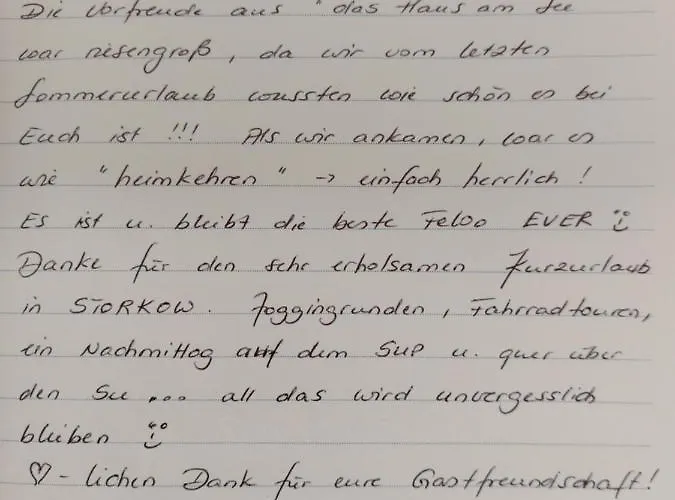 Die Vorfreude aus "das Haus am See
war riesengroß, da wir vom letzten
Sommerurlaub wussten wie schön es bei
Euch ist !!! Als wir ankamen, war es
wie "heimkehren" -> einfach herrlich!
Es ist u. bleibt die beste FeWo EVER ☺
Danke für den sehr erholsamen Kurzurlaub
in STORKOW. Joggingrunden, Fahrradtouren,
ein Nachmittag auf dem SUP u. quer über
den See ... all das wird unvergesslich
bleiben ☺
♡-lichen Dank für eure Gastfreundschaft!